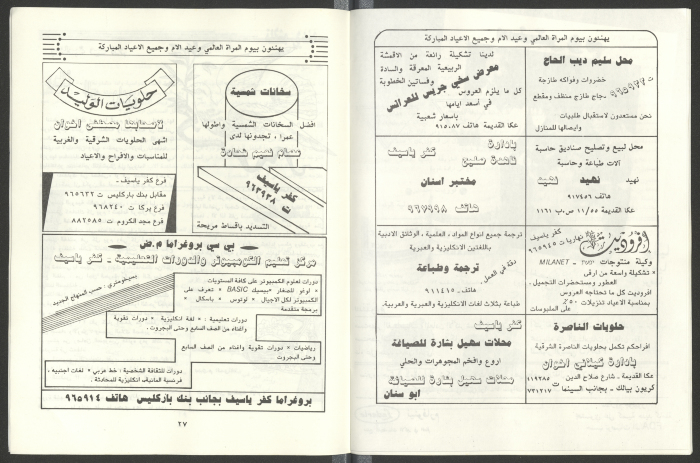 يهنئون بيوم المرأة العالمي وعيد الام وجميع الاعياد المباركة
محل سليم ديب الحاج
خضروات وفواكه طازجة
ت ٩٦٥٩٢٢
دجاج طازج منظف ومقطع
نحن مستعدون لاستقبال طلبيات
وايصالها للمنازل
لدينا تشكيلة رائعة من الاقمشة
الربيعية المعرقة والسادة
وفساتين الخطوبة
معرض سخي جريس للعرائس
كل ما يلزم العروس
في اسعد ايامها
باسعار شعبية
عكا القديمة هاتف ٩١٥٠٨٧
محل لبيع وتصليح صناديق حاسبة
آلات طباعة وحاسبة
نهيد نهيد نهيد
ت ٩١٧٤٥٦
عكا القديمة ١١/٥٥ ص.ب ١١٦١
بادارة
كفر ياسيف
مختبر اسنان
هاتف ٩٦٧٩٩٨
افروديت
كفر ياسيف
نهاريا ت ٩٦٥٩٤٥
وكيلة منتوجات MILANET
* تشكيلة واسعة من ارقى
العطور ومستحضرات التجميل.
افروديت كل ما تحتاجه العروس
بمناسبة الاعياد تنزيلات ٥٠٪
من الملبوسات
ترجمة جميع انواع المواد، العلمية، الوثائق الادبية
باللغتين الانكليزية والعبرية
ترجمة وطباعة
دقة في العمل.
ت ٩١١٤١٥
طباعة بثلاث لغات الانكليزية والعبرية والعربية.
حلويات الناصرة
افراحكم تكمل بحلويات الناصرة الشرقية
بادارة كيلاني اخوان
عكا القديمة - شارع صلاح الدين ٩١٩٢٨٥
كريون بيالك - بجانب السينما ت ٧٣١٢١٧
كفر ياسيف
محلات سهيل بنارة للصياغة
اروع وافخم المجوهرات والحلي
محلات سهيل بنارة للصياغة
ابو سنان
يهنئون بيوم المرأة العالمي وعيد الام وجميع الاعياد المباركة
سخانات شمسية
افضل السخانات الشمسية واطولها
عمرا، تجدونها لدى
عصام نعيم شحادة
كفر ياسيف
ت ٩٦٣٩٣٨
التسديد باقساط مريحة
حلويات الوليد
لاصحابها مصطفى اخوان
اشهى الحلويات الشرقية والغربية
للمناسبات والافراح والاعياد
فرع كفر ياسيف -
مقابل بنك باركليس ت ٩٦٥٦٢٢
فرع يركا ت ٩٦٨٢٤٠
فرع مجد الكروم ت ٨٨٢٥٨٥
بي سي بروغراما م.ض
مركز تعليم الكومبيوتر والدورات التعليمية - كفر ياسيف
دورات لعلوم الكمبيوتر على كافة المستويات.
* لوغو للصغار *بيسيك BASIC * تعرف على
الكمبيوتر لكل الاجيال * لوتوس * باسكال *
برمجة متقدمة
بسيخومتري: حسب المنهاج الجديد
دورات تعليمية: * لغة انكليزية * دورات تقوية
واغناء من الصف السابع وحتى البجروت.
رياضيات * دورات تقوية واغناء من الصف السابع
وحتى البجروت
دورات للثقافة الشخصية: خط عربي * لغات اجنبيه.
فرنسية المانية، انكليزية للمحادثة.
بروغراما كفر ياسيف بجانب بنك باركليس هاتف ٩٦٥٩١٤
٢٧